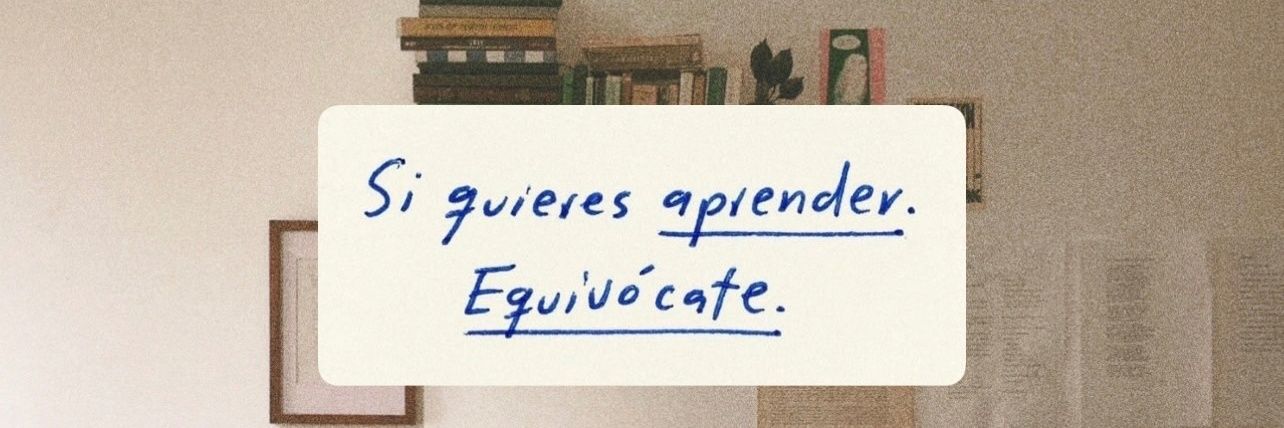 Si quieres aprender.
Equivócate.